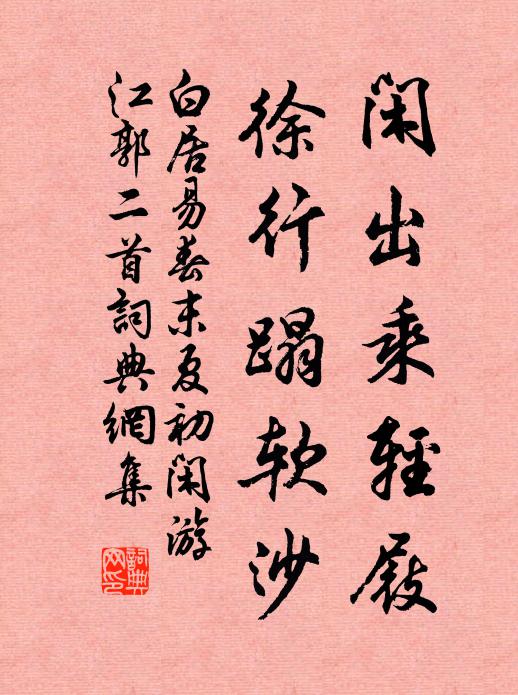 闲出乘輕屐
徐行蹋软沙
白居易春末夏初闲游
江郭二首詞典網集
詞典网印